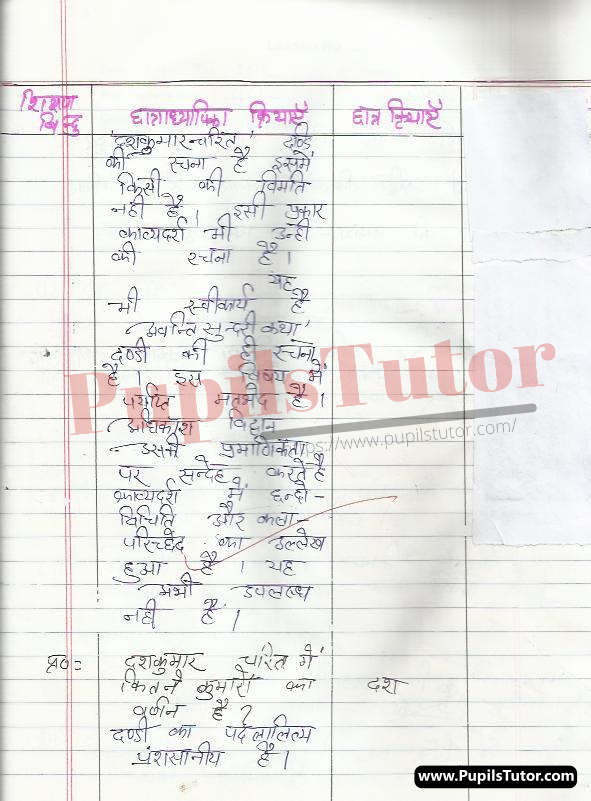 शिक्षण बिन्दु
छात्राध्यापिका क्रियाएँ
छात्र क्रियाएँ
'दशकुमारचरित' दण्डि
की रचना है इसमें
किसी की विमति
नही है। इसी प्रकार
काव्यदर्श भी उन्ही
की रचना है।
यह
भी स्वीकार्य है
अवन्ति सुन्दरी कथा'
दण्डी की ही रचना
है। इस विषय में
पर्याप्त मतभेद है।
अधिकांश विद्वान
इसकी प्रमाणिकता
पर सन्देह करते है
काव्यदर्श में छन्दो-
विचिति और कला-
परिच्छेद का उल्लेख
हुआ है। यह
अभी उपलब्ध
नही है।
प्र०= दशकुमार चरित में
कितने कुमारों का दश
वर्णन है?
दण्डी का पदलालित्य
प्रंशसानीय है।
PupilsTutor
https://www.pupilstutor.com/
www.PupilsTutor.com